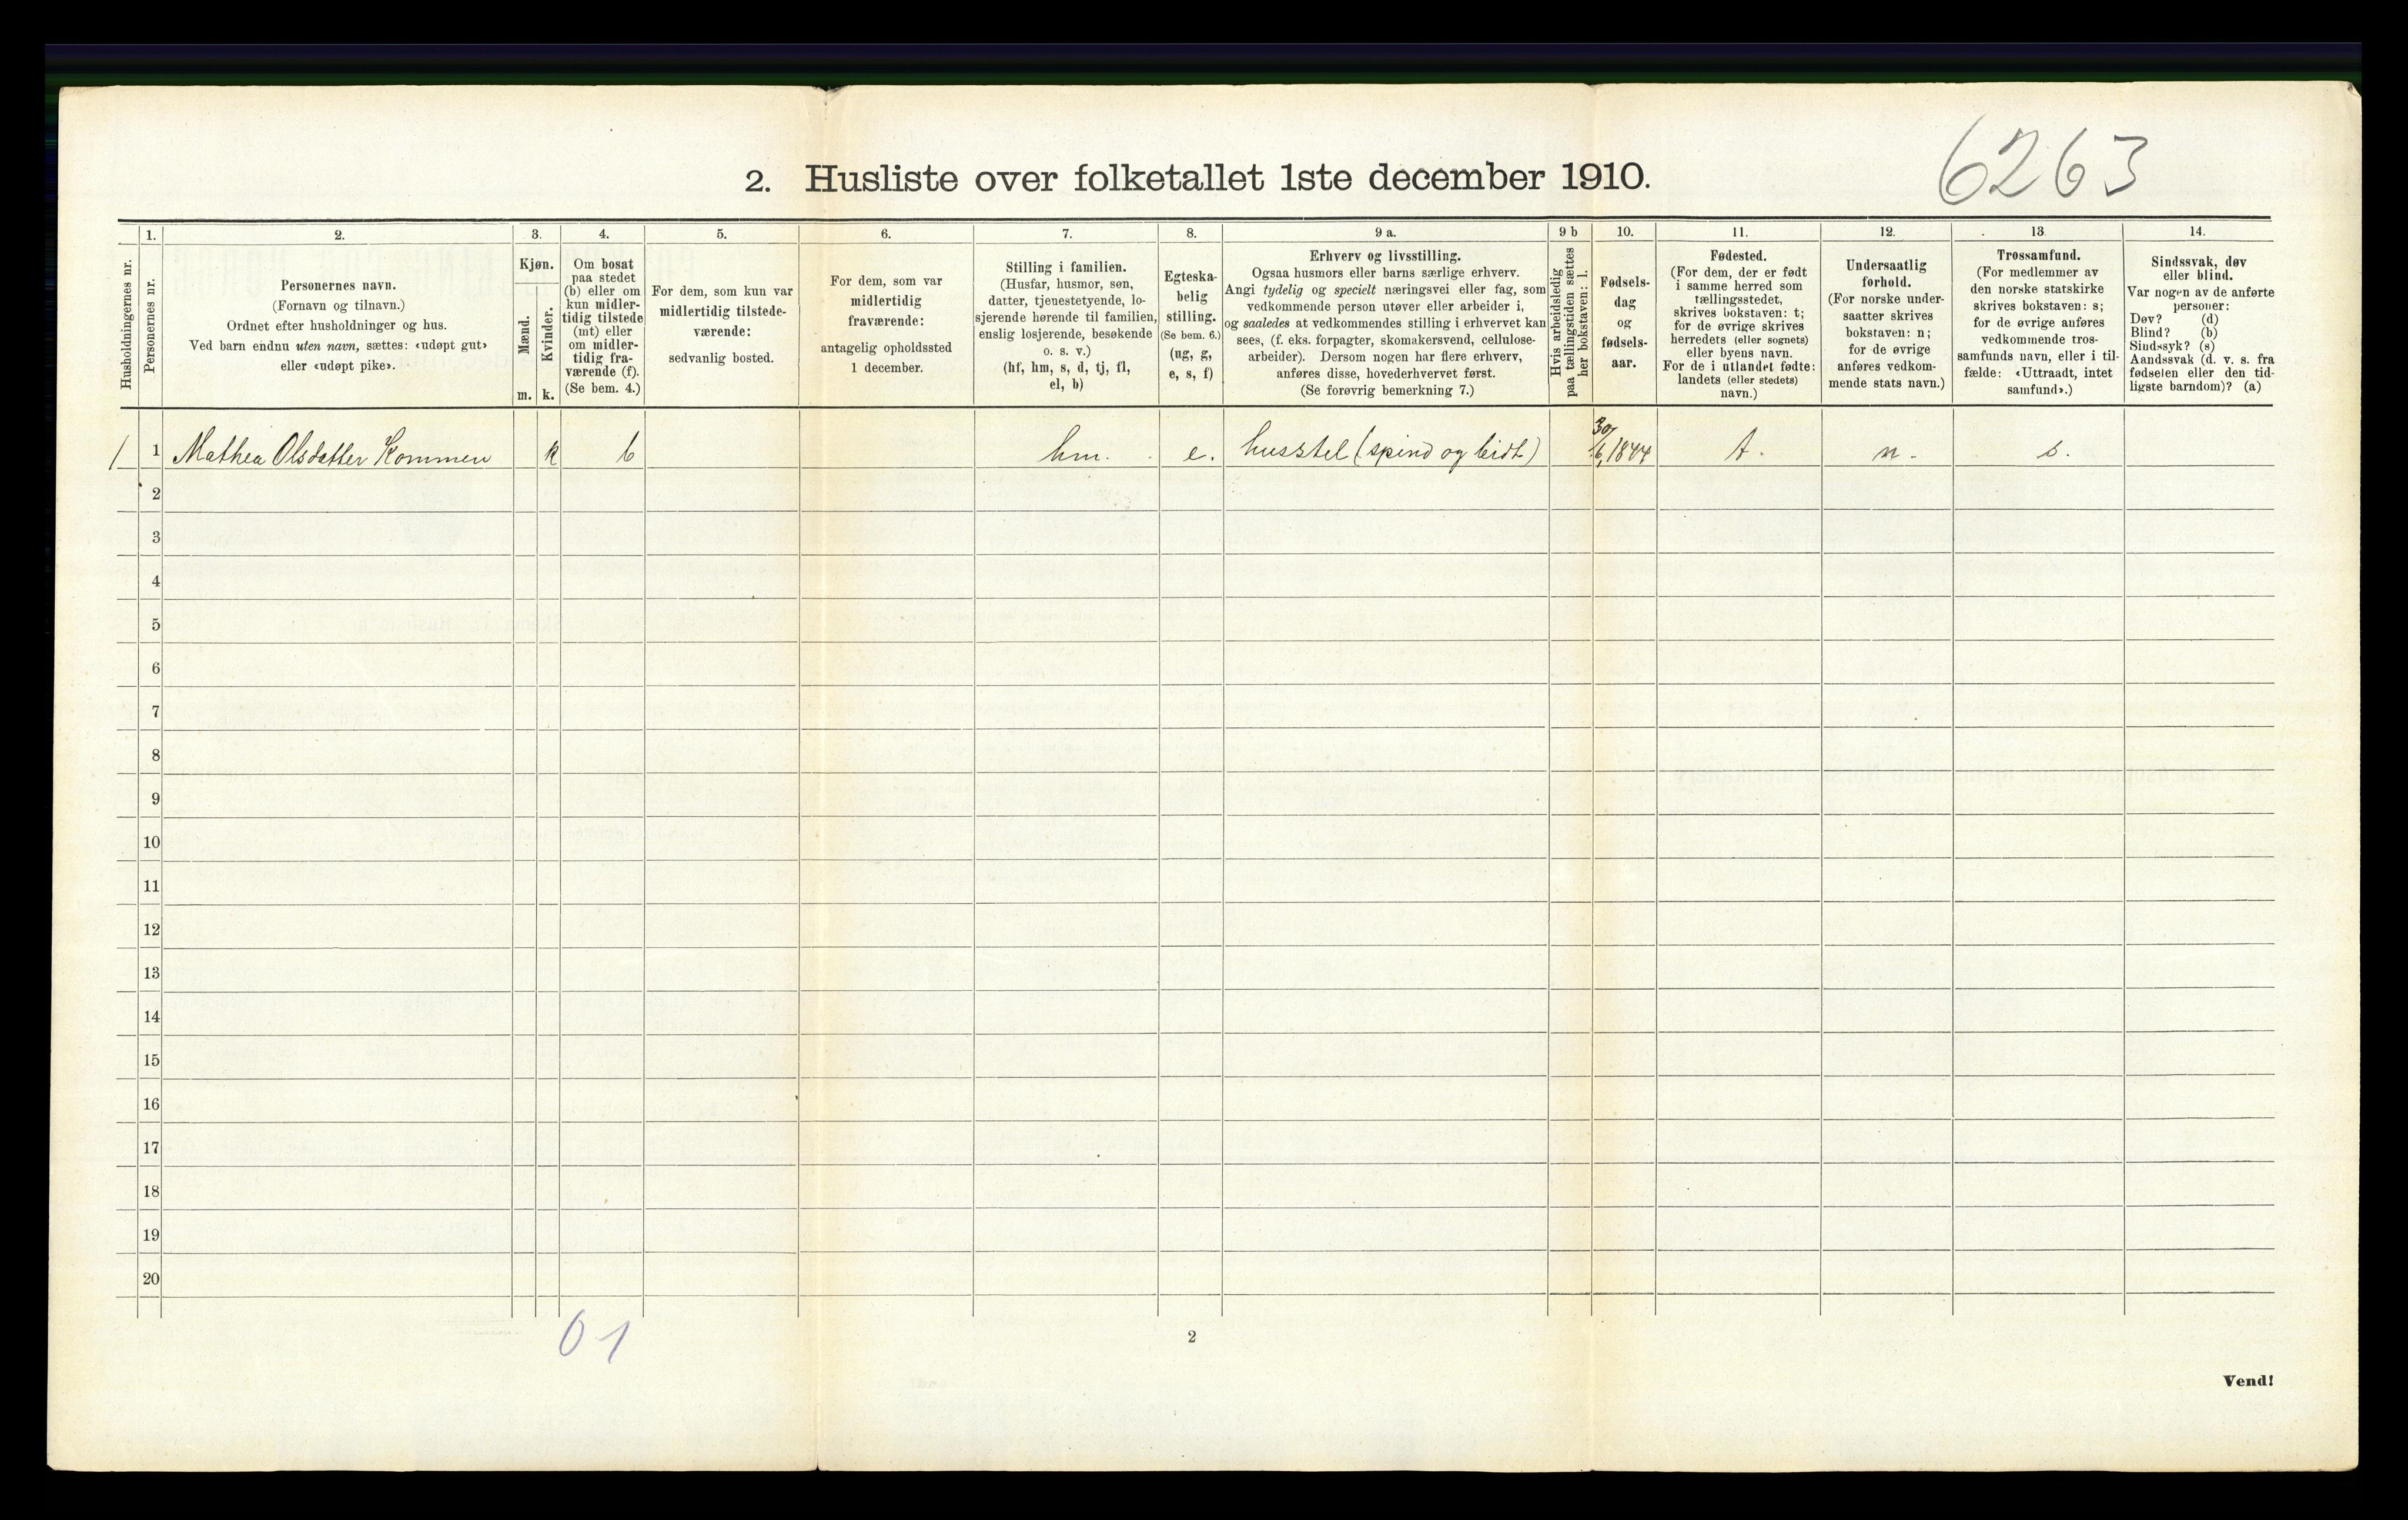 6263
2. Husliste over folketallet 1ste december 1910.
Husholdningernes nr.
1.
Personernes nr.
2.
Personernes navn.
(Fornavn og tilnavn.)
Ordnet efter husholdninger og hus.
Ved barn endnu uten navn, sættes: «udøpt gut»
eller «udøpt pike».
3.
Kjøn.
Mænd.
Kvinder.
m. k.
4.
Om bosat
paa stedet
(b) eller om
kun midler-
tidig tilstede
(mt) eller
om midler-
tidig fra-
værende (f).
(Se bem. 4.)
5.
For dem, som kun var
midlertidig tilstede-
værende:
sedvanlig bosted.
6.
For dem, som var
midlertidig
fraværende:
antagelig opholdssted
1 december.
7.
Stilling i familien.
(Husfar, husmor, søn,
datter, tjenestetyende, lo-
sjerende hørende til familien,
enslig losjerende, besøkende
o. s. v.)
(hf, hm, s, d, tj, fl,
el, b)
8.
Egteska-
belig
stilling.
(Se bem. 6.)
(ug, g,
e, s, f)
9 a.
Erhverv og livsstilling.
Ogsaa husmors eller barns særlige erhverv.
Angi tydelig og specielt næringsvei eller fag, som
vedkommende person utøver eller arbeider i,
og saaledes at vedkommendes stilling i erhvervet kan
sees, (f. eks. forpagter, skomakersvend, cellulose-
arbeider). Dersom nogen har flere erhverv,
anføres disse, hovederhvervet først.
(Se forøvrig bemerkning 7.)
9 b
Hvis arbeidsledig
paa tællingstiden sættes
her bokstaven: l.
10.
Fødsels-
dag
og
fødsels-
aar.
11.
Fødested.
(For dem, der er født
i samme herred som
tællingsstedet,
skrives bokstaven: t;
for de øvrige skrives
herredets (eller sognets)
eller byens navn.
For de i utlandet fødte:
landets (eller stedets)
navn.)
12.
Undersaatlig
forhold.
(For norske under-
saatter skrives
bokstaven: n;
for de øvrige
anføres vedkom-
mende stats navn.)
13.
Trossamfund.
(For medlemmer av
den norske statskirke
skrives bokstaven: s;
for de øvrige anføres
vedkommende tros-
samfunds navn, eller i til-
fælde: «Uttraadt, intet
samfund».)
14.
Sindssvak, døv
eller blind.
Var nogen av de anførte
personer:
Døv? (d)
Blind? (b)
Sindssyk? (s)
Aandssvak (d. v. s. fra
fødselen eller den tid-
ligste barndom)? (a)
1 1 Mathea Olsdatter Kommen k b hm. e. husstel (spind og bidt) 30/6 1844 t. n. s.
2
3
4
5
6
7
8
9
10
11
12
13
14
15
16
17
18
19
20
0 1
2
Vend!